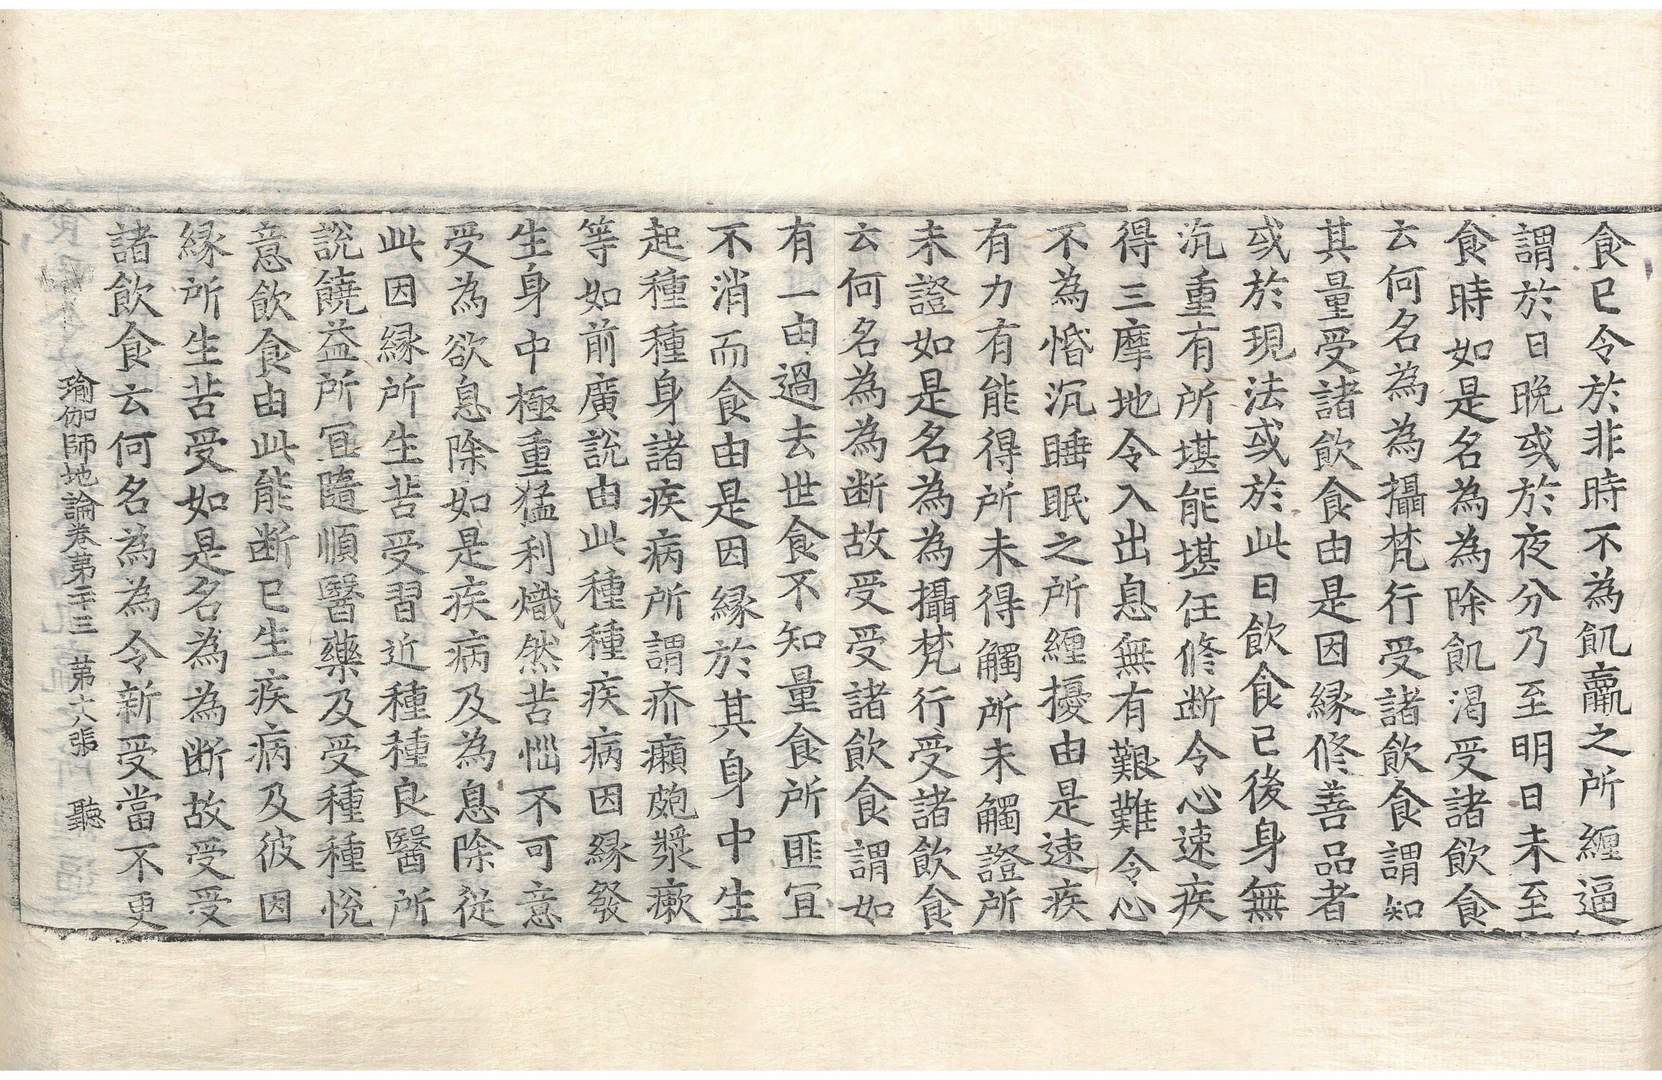 食已令於非時不為飢羸之所纏逼
謂於日晚或於夜分乃至明日未至
食時如是名為為除飢渴受諸飲食
云何名為為攝梵行受諸飲食謂知
其量受諸飲食由是因緣修善品者
或於現法或於此日飲食已後身無
沉重有所堪能堪任修断令心速疾
得三摩地令入出息無有艱難令心
不為惛沉睡眠之所纏擾由是速疾
有力有能得所未得觸所未觸證所
未證如是名為為攝梵行受諸飲食
云何名為為断故受受諸飲食謂如
有一由過去世食不知量食所匪冝
不消而食由是因緣於其身中生
起種種身諸疾病所謂疥癩皰漿瘶
等如前廣說由此種種疾病因緣發
生身中極重猛利熾然苦惱不可意
受為欲息除如是疾病及為息除從
此因緣所生苦受習近種種良醫所
說饒益所冝隨順醫藥及受種種悅
意飲食由此能断已生疾病及彼因
緣所生苦受如是名為為断故受受
諸飲食云何名為為令新受當不更
瑜伽師地論卷第二十三　第六張　聽